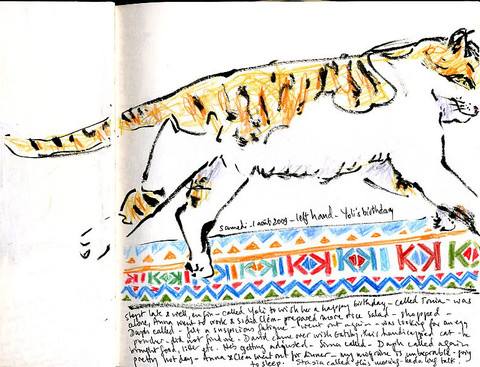 samedi - 1 août 2009 - left hand - Yoli's birthday
slept late & well, enfin - called Yoli to wish her a happy birthday - called Sonia - was
alone, Anna went to work & sister Clem - prepared more rice salad - shopped -
Daph called - just a suspicious fatigue - went out again - was looking for an egg
powder - did not find one - David came over with Gatsby, his handicapped cat - he
brought food, litter etc. He's getting adjusted - Simo called - Daph called again
pretty hot day - Anna & Clem went out for dinner - my migraine is unbearable - pray
to sleep. Stasia called this morning - had a long talk